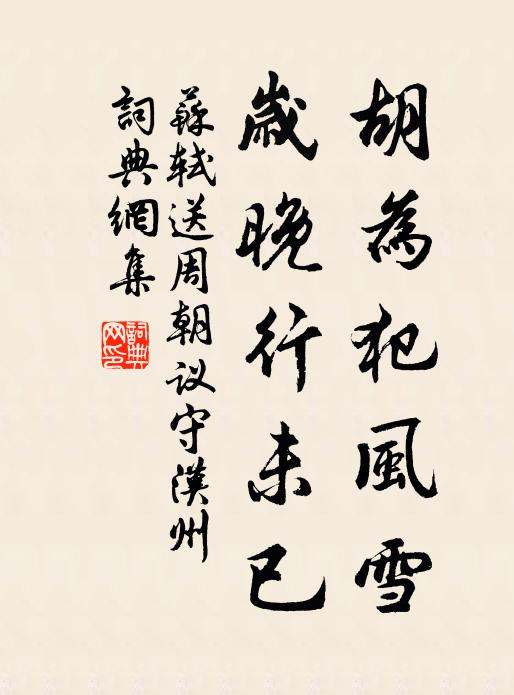 胡為犯風雪
歲晚行未已
蘇軾送周朝议守漢州
詞典網集
詞典网印